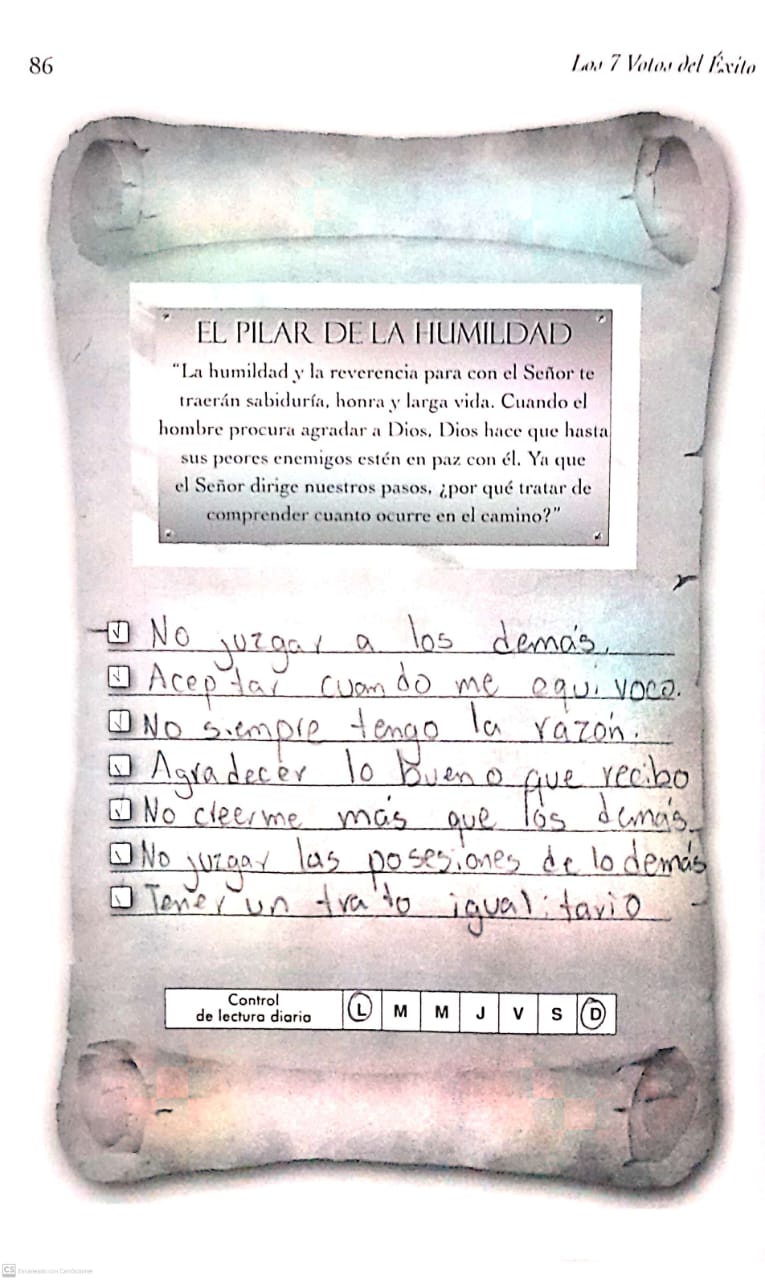 86
Los 7 Votos del Éxito
EL PILAR DE LA HUMILDAD
“La humildad y la reverencia para con el Señor te
traerán sabiduría, honra y larga vida. Cuando el
hombre procura agradar a Dios, Dios hace que hasta
sus peores enemigos estén en paz con él. Ya que
el Señor dirige nuestros pasos, ¿por qué tratar de
comprender cuanto ocurre en el camino?”
No juzgar a los demás.
Aceptar cuando me equivoco.
No siempre tengo la razón.
Agradecer lo bueno que recibo
No creerme más que los demás.
No juzgar las posesiones de lo demás
Tener un trato igualitario
Control
de lectura diaria
L M M J V S D
CS Escaneado con CamScanner